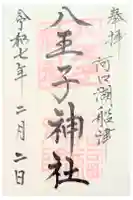 奉拝
河口湖船津
八王子神社
令和七年
二月二日